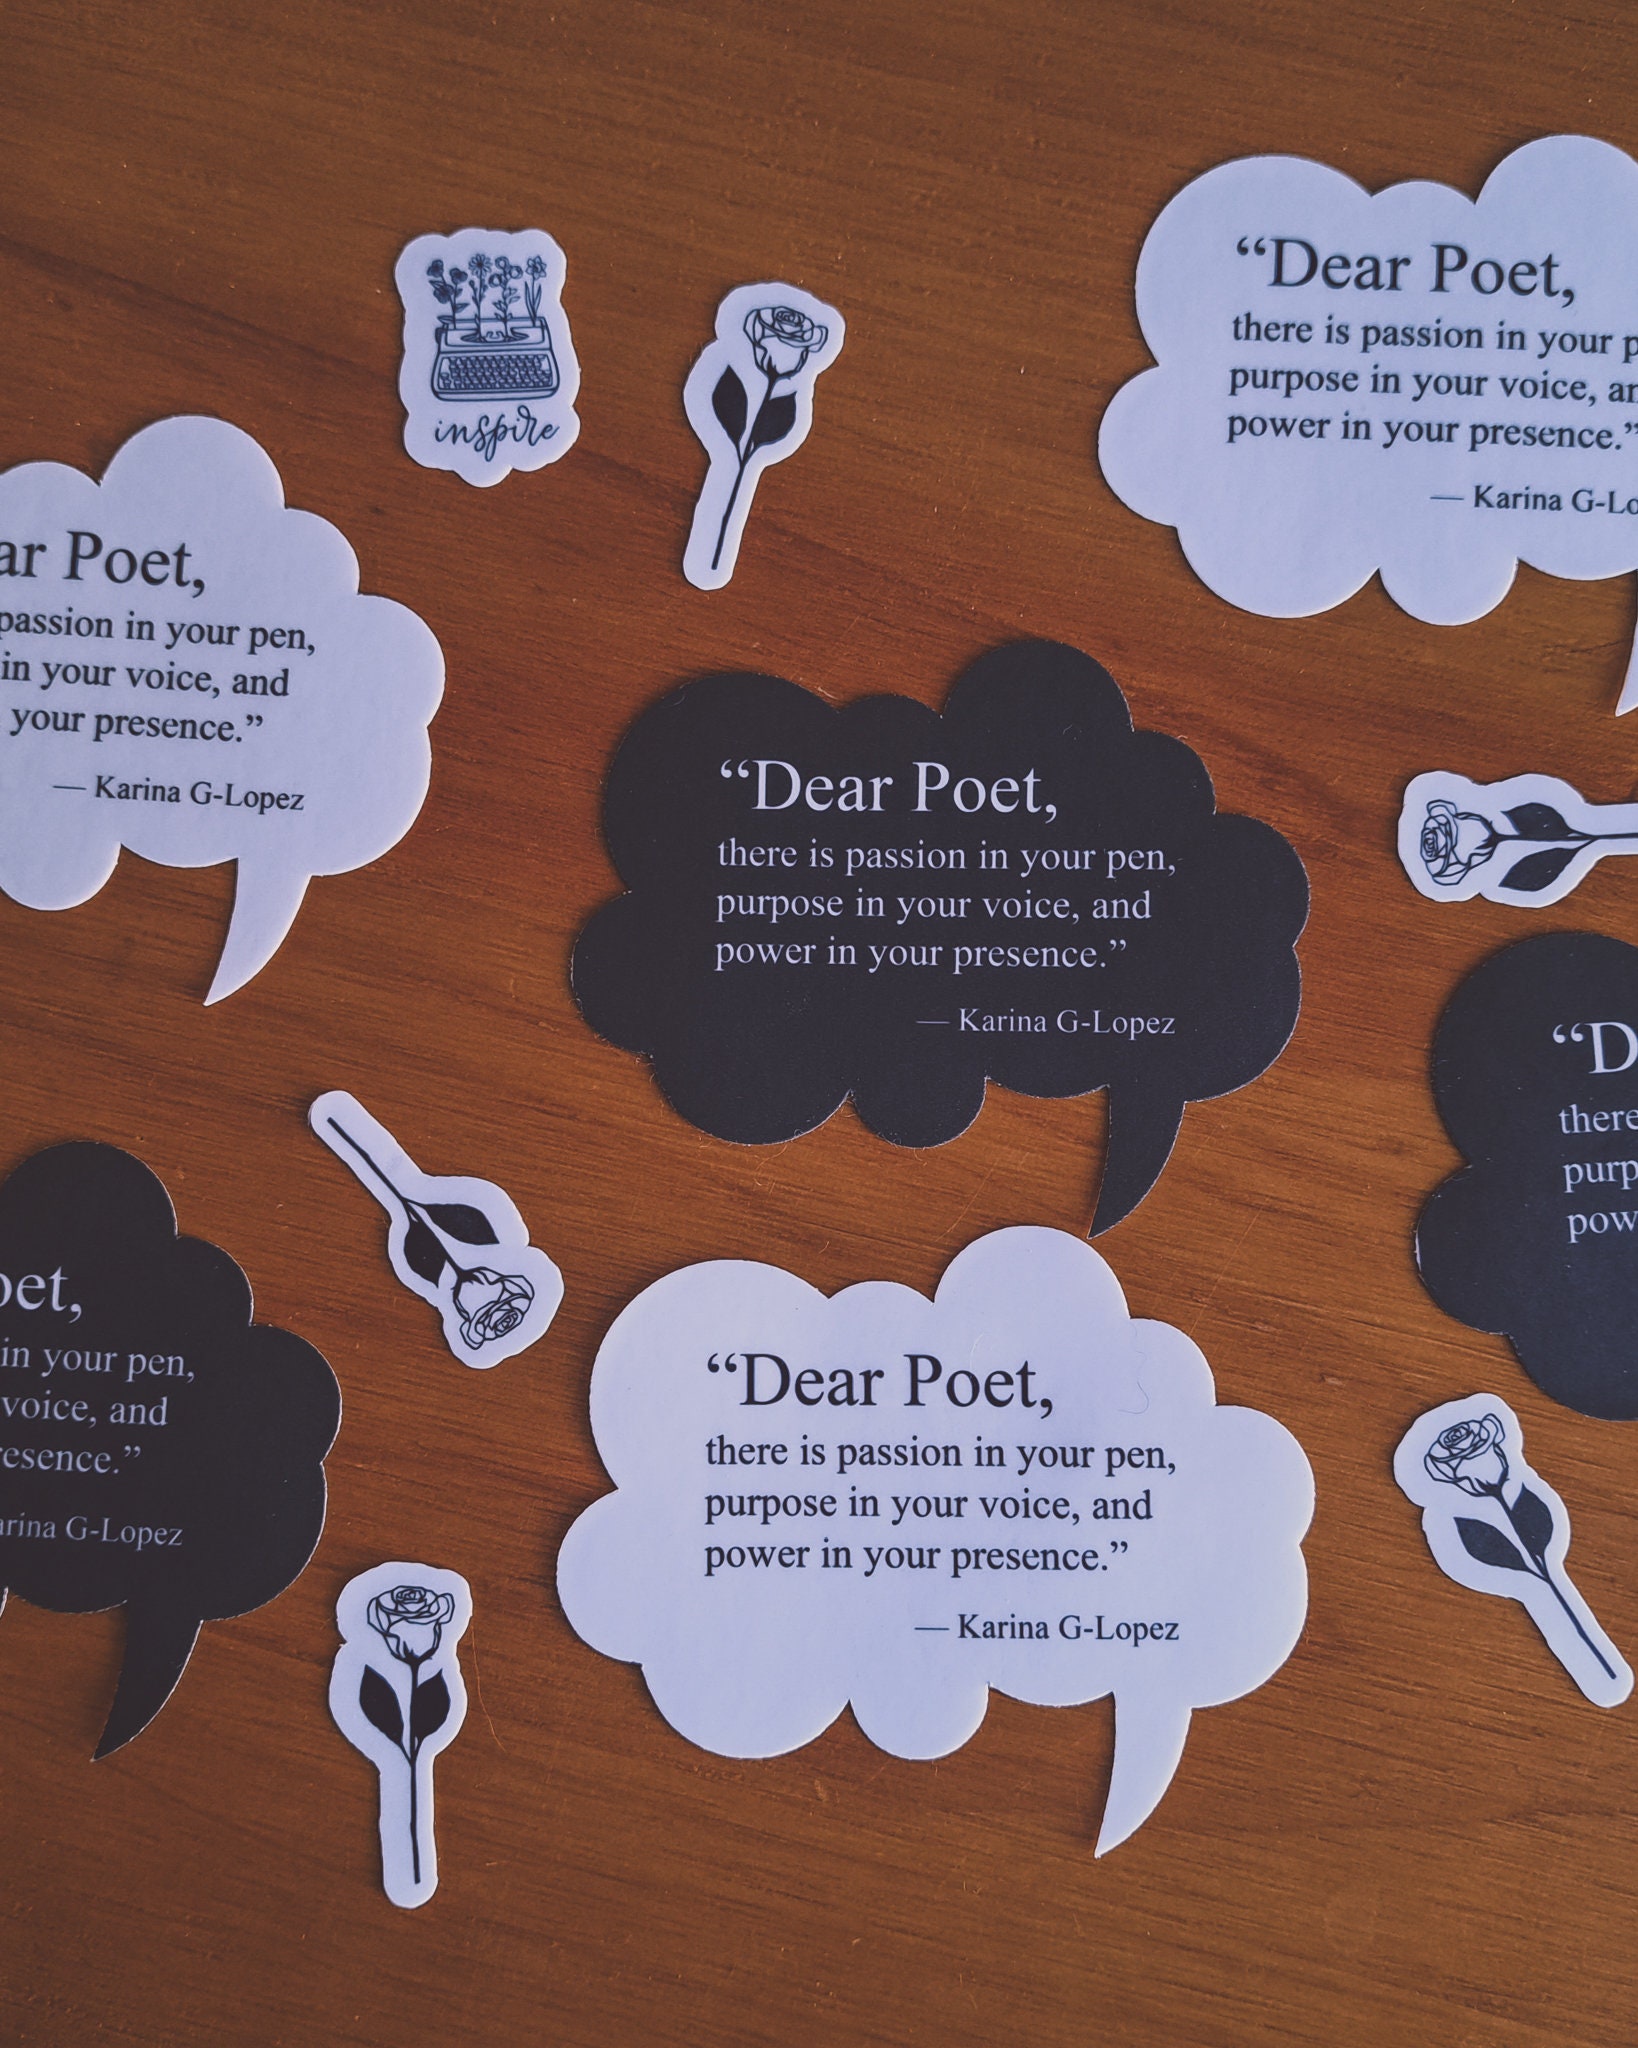 inspire
“Dear Poet,
there is passion in your
purpose in your voice,
power in your presence.”
— Karina
Poet,
passion in your pen,
in your voice, and
your presence.”
— Karina G-Lopez
“Dear Poet,
there is passion in your pen,
purpose in your voice, and
power in your presence.”
— Karina G-Lopez
there
in your pen,
voice, and
G-Lopez
“Dear Poet,
there is passion in your pen,
purpose in your voice, and
power in your presence.”
— Karina G-Lopez